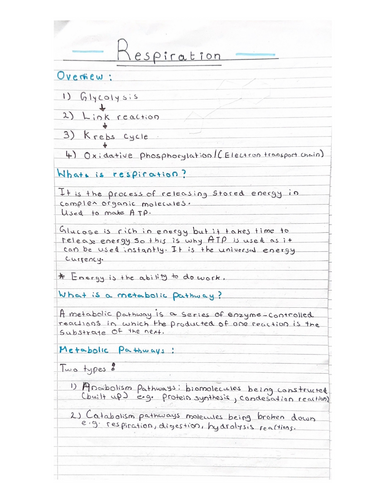 Respiration
Overview:
1) Glycolysis
2) Link reaction
3) Krebs cycle
4) Oxidative phosphorylation/(Electron transport chain)
Whats is respiration?
It is the process of releasing stored energy in
complex organic molecules.
Used to make ATP.
Glucose is rich in energy but it takes time to
release energy so this is why ATP is used as it
can be used instantly. It is the universal energy
currency.
* Energy is the ability to do work.
What is a metabolic pathway?
A metabolic pathway is a series of enzyme-controlled
reactions in which the producted of one reaction is the
substrate of the next.
Metabolic Pathways:
Two types:
1) Anabolism pathways: biomolecules being constructed
(built up) e.g. protein synthesis, condesation reaction)
2) Catabolism pathways molecules being broken down
e.g. respiration, digestion, hydrolysis reactions.